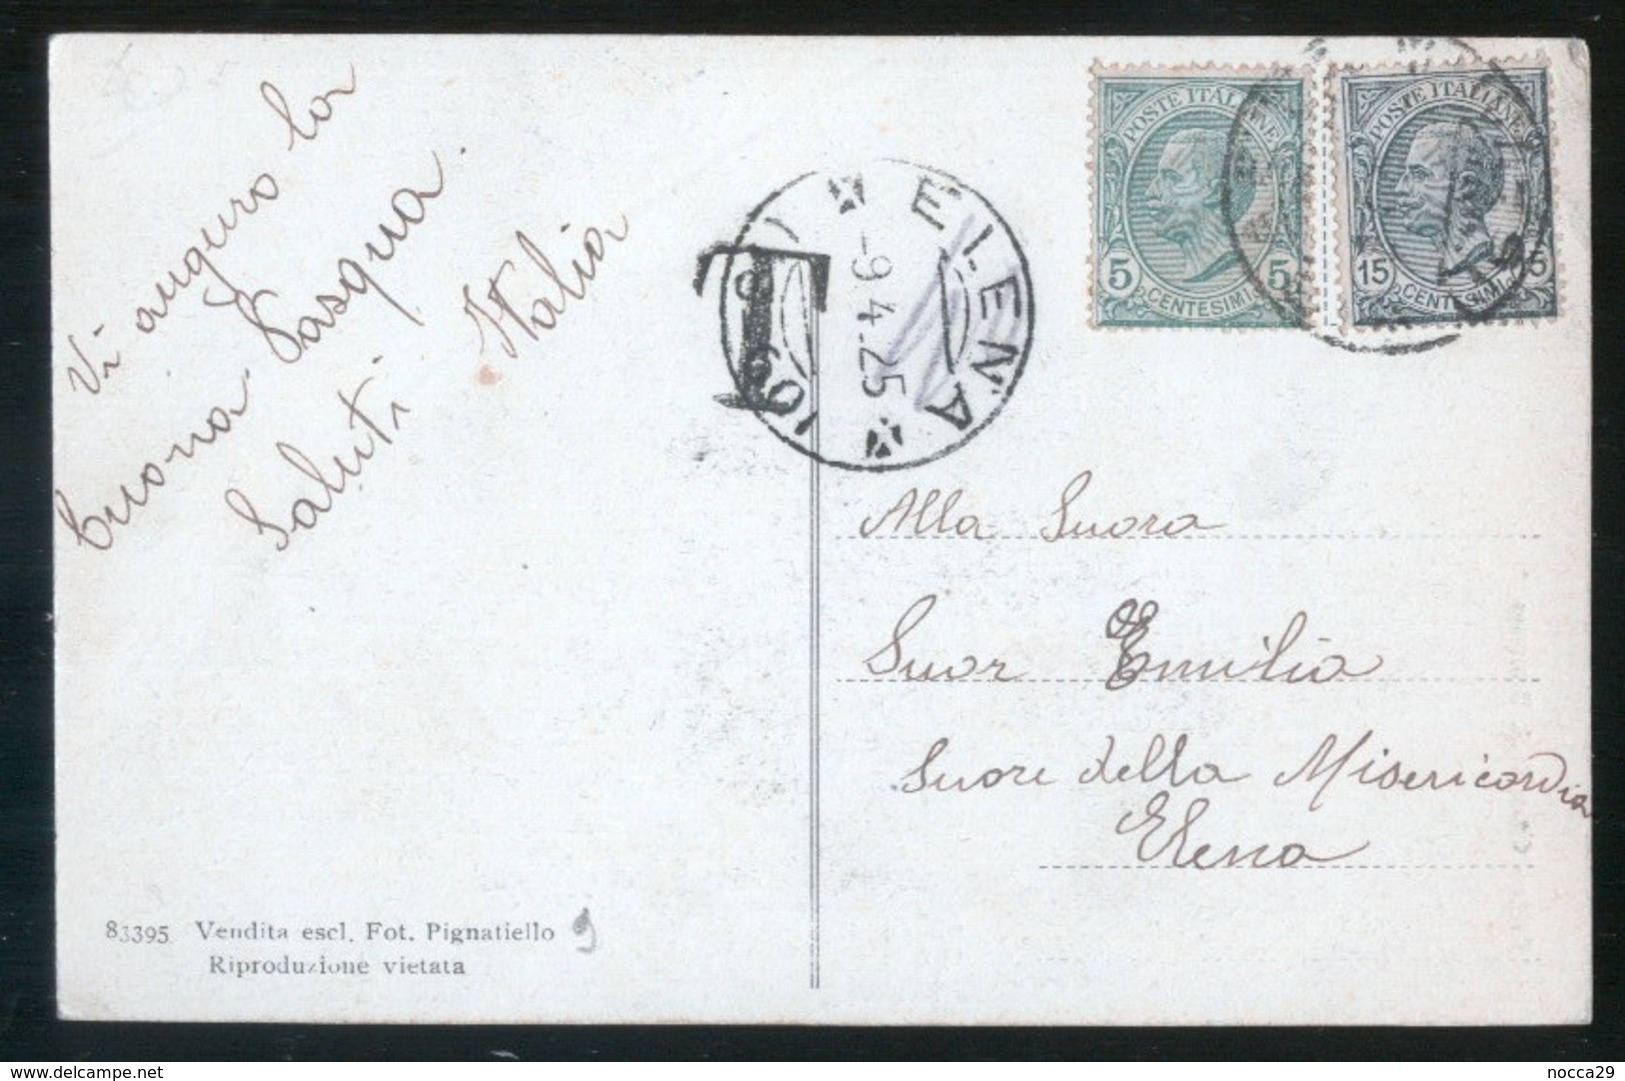 Vi auguro la
buona Pasqua.
Saluti Italia
83395 Vendita escl. Fot. Pignatiello
Riproduzione vietata
T
ELENA
-9.4.25
POSTE ITALIANE
5 5
CENTESIMI
POSTE ITALIANE
15 15
CENTESIMI
Alla Suora
Suor Emilia
Suore della Misericordia
Elena
delcampe.net
nocca29